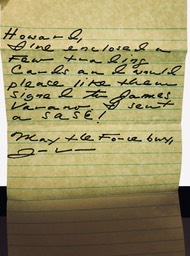 Howard,
I've enclosed a
few trading
cards and would
please like them
signed to James
Varano. I sent
a SASE!
May the Force b w y,